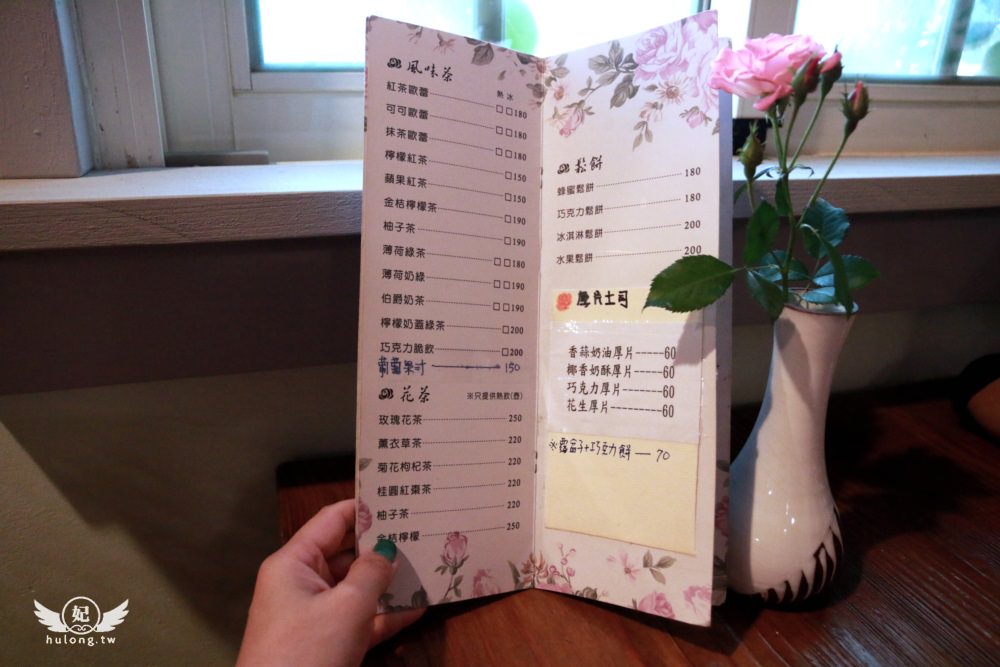 風味茶
熱 冰
紅茶歐蕾 □ □180
可可歐蕾 □ □180
抹茶歐蕾 □ □180
檸檬紅茶 □150
蘋果紅茶 □150
金桔檸檬茶 □190
柚子茶 □190
薄荷綠茶 □ □180
薄荷奶綠 □ □190
伯爵奶茶 □ □190
檸檬奶蓋綠茶 □200
巧克力脆飲 □200
葡萄果汁 150
花茶 ※只提供熱飲(壺)
玫瑰花茶 250
薰衣草茶 220
菊花枸杞茶 220
桂圓紅棗茶 220
柚子茶 220
金桔檸檬 250
鬆餅
蜂蜜鬆餅 180
巧克力鬆餅 180
冰淇淋鬆餅 200
水果鬆餅 200
厚片土司
香蒜奶油厚片-----60
椰香奶酥厚片-----60
巧克力厚片-------60
花生厚片---------60
※露盒子+巧克力餅 — 70
妃
hulong.tw